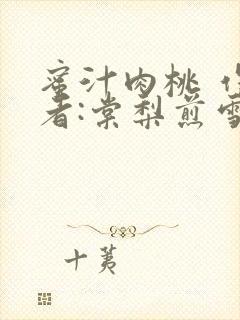 蜜汁肉桃 作
者:棠梨煎雪
十荑